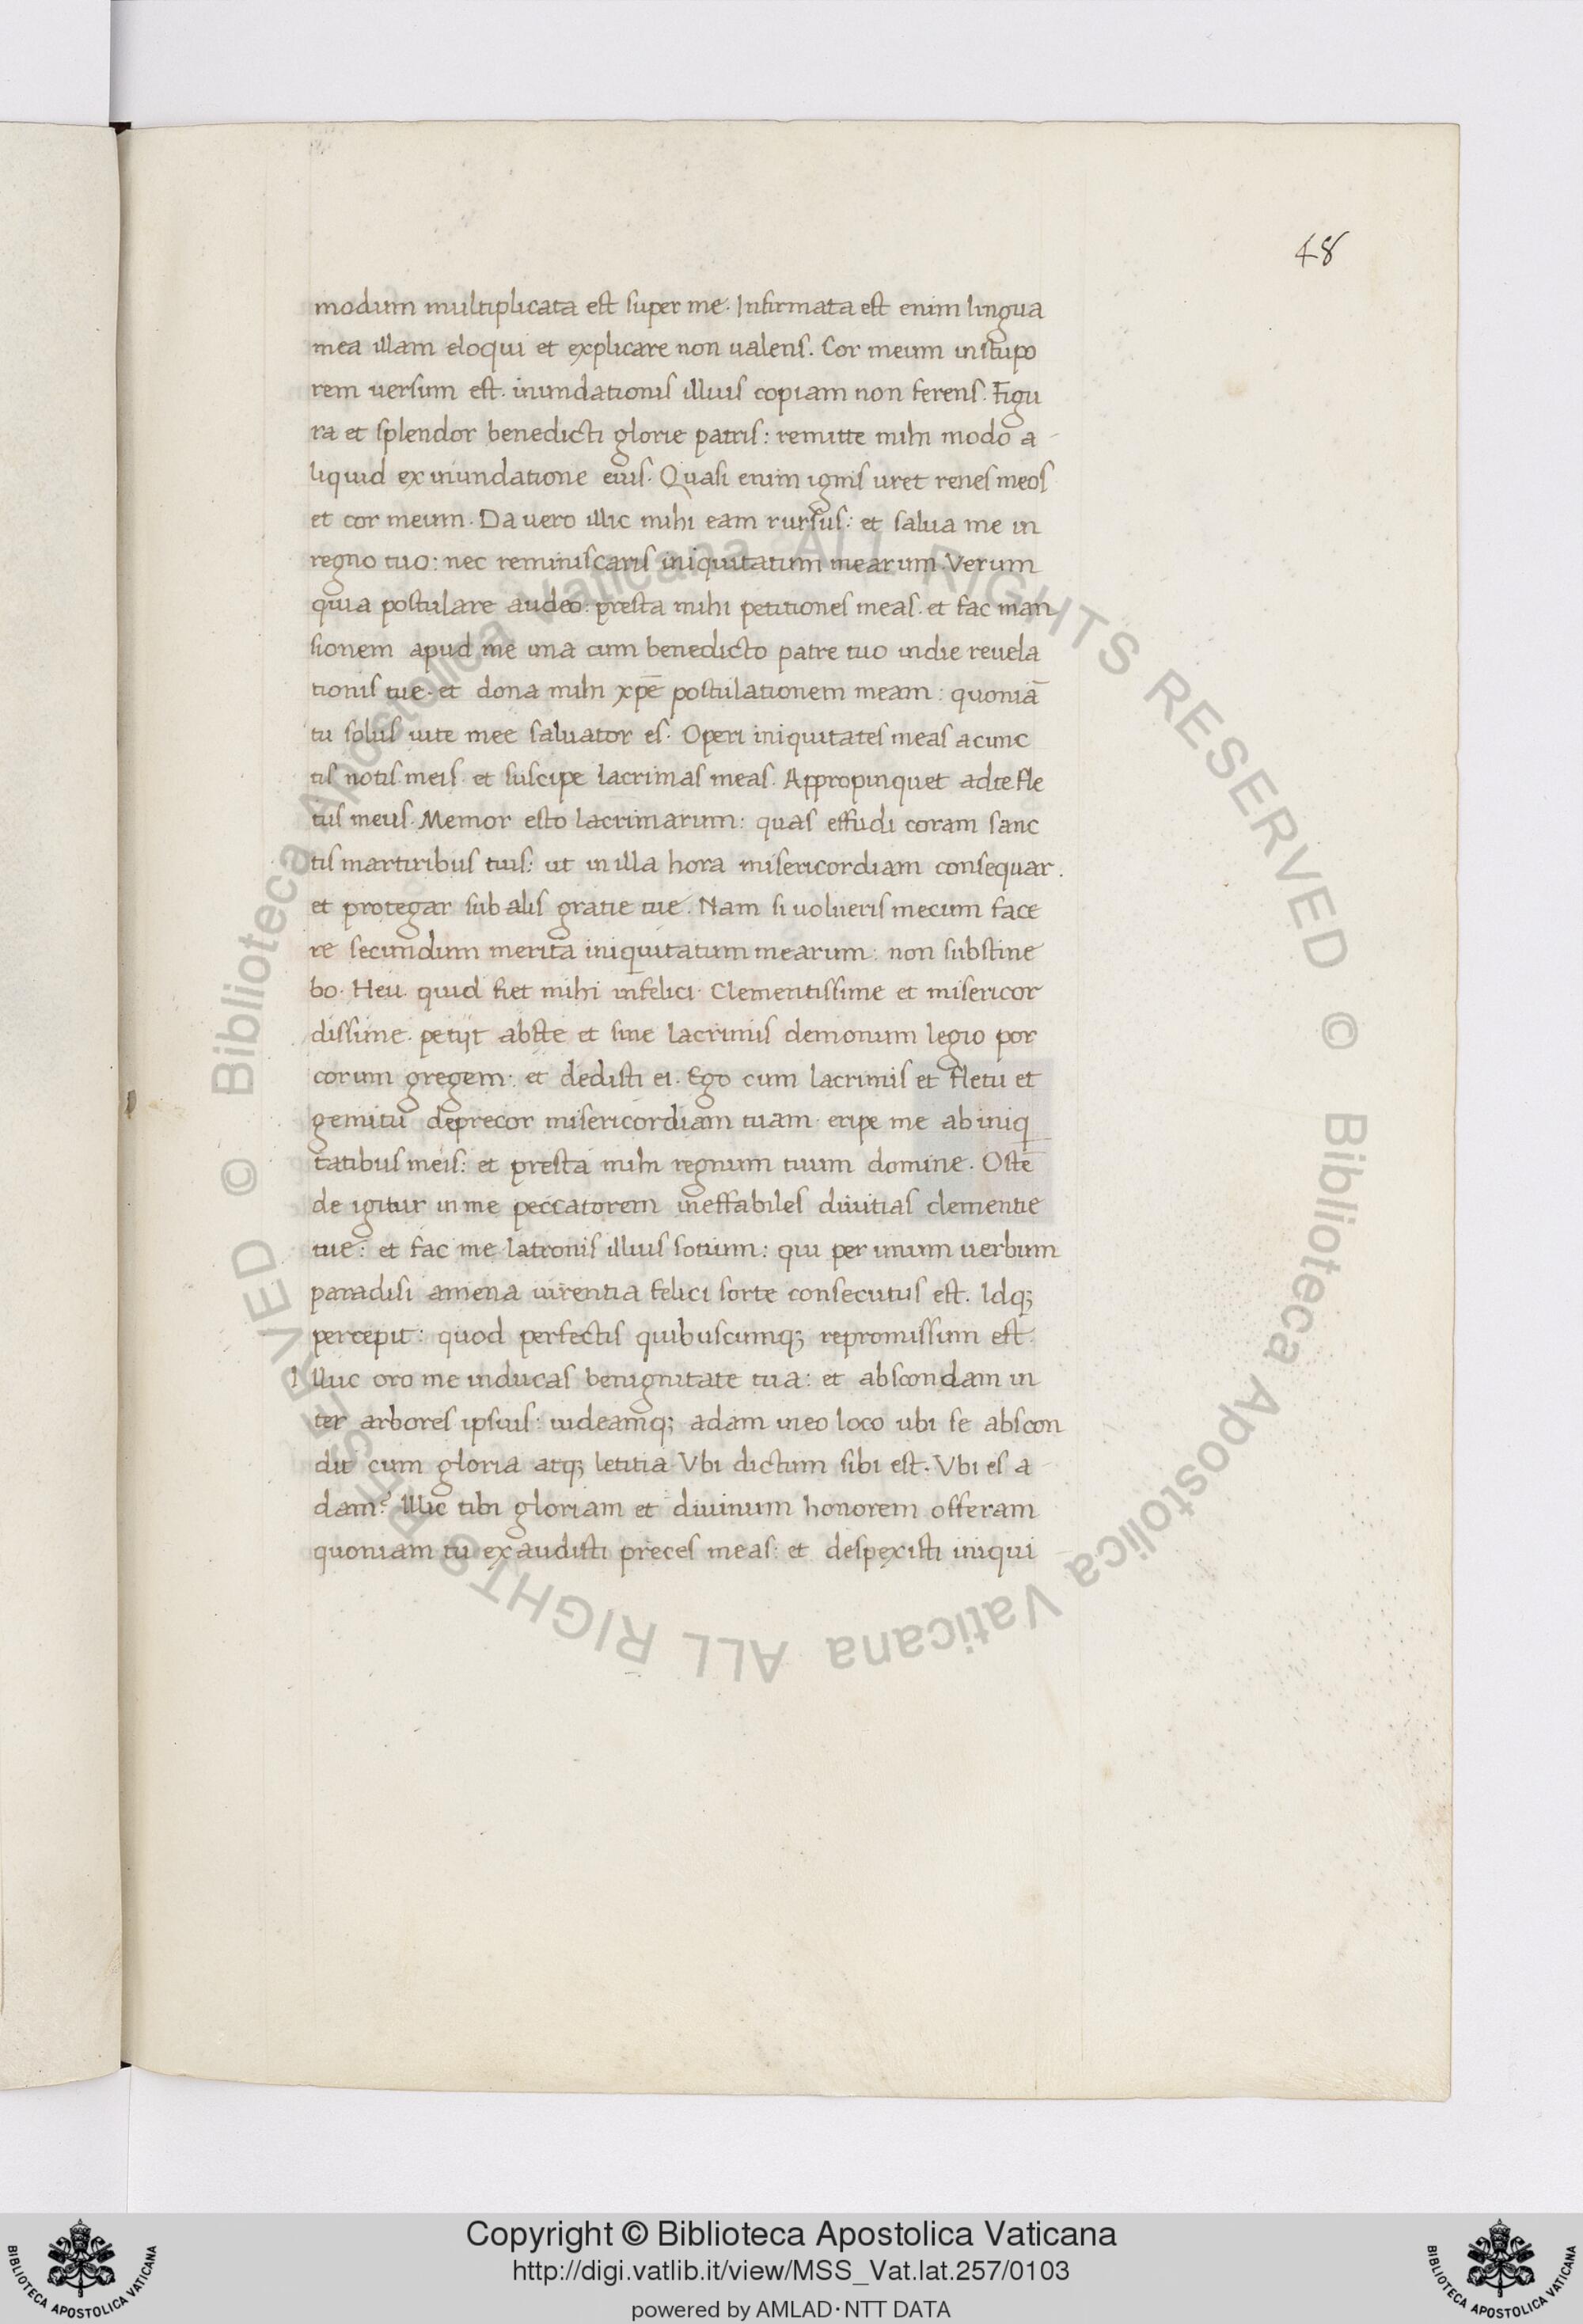 48
modum multiplicata est super me. Infirmata est enim lingua
mea illam eloqui et explicare non ualens. Cor meum in stupo
rem uersum est. inundationis illius copiam non ferens. Figu
ra et splendor benedicti glorie patris: remitte mihi modo a-
liquid ex inundatione eius. Quasi enim ignis uret renes meos
et cor meum. Da uero illic mihi eam rursus: et salua me in
regno tuo: nec reminiscaris iniquitatum mearum. Verum
quia postulare audeo: presta mihi petitiones meas. et fac man
sionem apud me una cum benedicto patre tuo in die reuela
tionis tue. et dona mihi xpē postulationem meam: quoniā
tu solus uite mee saluator es. Operi iniquitates meas a cunc
tis notis meis. et suscipe lacrimas meas. Appropinquet ad te fle
tus meus. Memor esto lacrimarum: quas effudi coram sanc
tis martiribus tuis: ut in illa hora misericordiam consequar.
et protegar sub alis gratie tue. Nam si uolueris mecum face
re secundum merita iniquitatum mearum: non substine
bo. Heu. quid fiet mihi infelici. Clementissime et misericor
dissime. petijt abste et sine lacrimis demonum legio por
corum gregem: et dedisti ei. Ego cum lacrimis et fletu et
gemitu deprecor misericordiam tuam. eripe me ab iniq
tatibus meis: et presta mihi regnum tuum domine. Ostē
de igitur in me peccatorem ineffabiles diuitias clementie
tue: et fac me latronis illius sotium: qui per unum uerbum
paradisi amena uirentia felici sorte consecutus est. Idq;
percepit: quod perfectis quibuscumq; repromissum est.
I lluc oro me inducas benignitate tua: et abscondam in
ter arbores ipsius: uideamq; adam in eo loco ubi se abscon
dit cum gloria atq; letitia. Vbi dictum sibi est. Vbi es a-
dam? Illic tibi gloriam et diuinum honorem offeram
quoniam tu exaudisti preces meas: et despexisti iniqui
© Biblioteca Apostolica Vaticana ALL RIGHTS RESERVED © Biblioteca Apostolica Vaticana ALL RIGHTS RESERVED
Copyright © Biblioteca Apostolica Vaticana
http://digi.vatlib.it/view/MSS_Vat.lat.257/0103
powered by AMLAD·NTT DATA
BIBLIOTECA APOSTOLICA VATICANA
BIBLIOTECA APOSTOLICA VATICANA